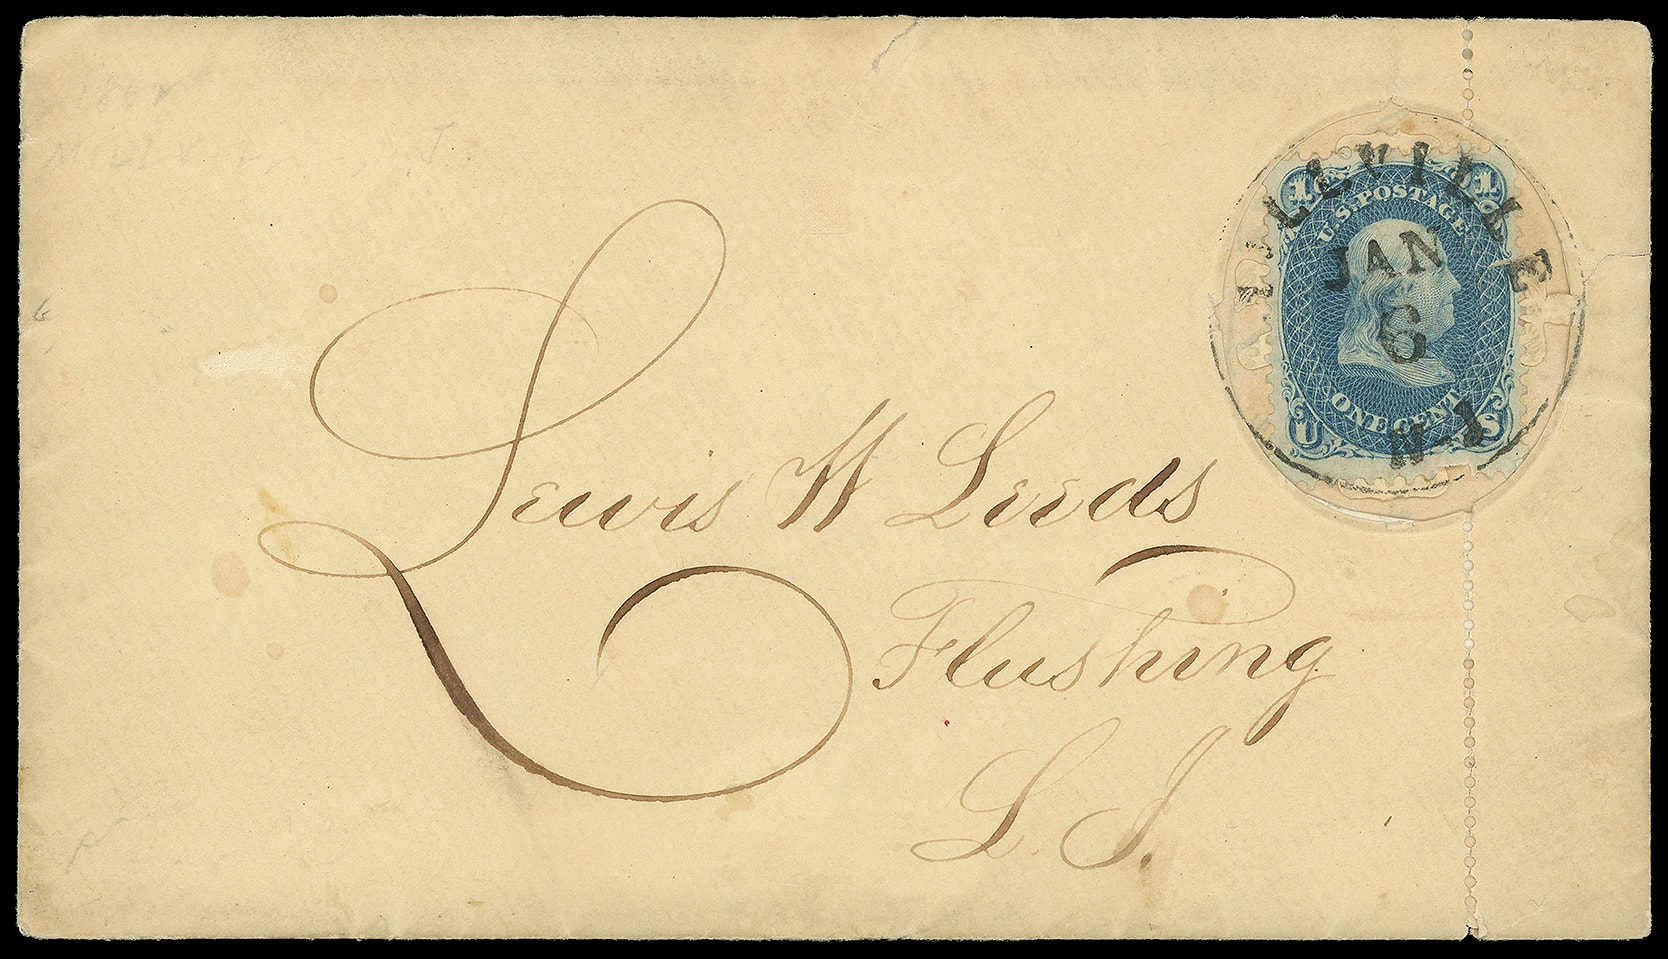 MILLVILLE
JAN
6
N.J
1 1
U.S. POSTAGE
ONE CENT
U S
Lewis W Leeds
Flushing
L. I.